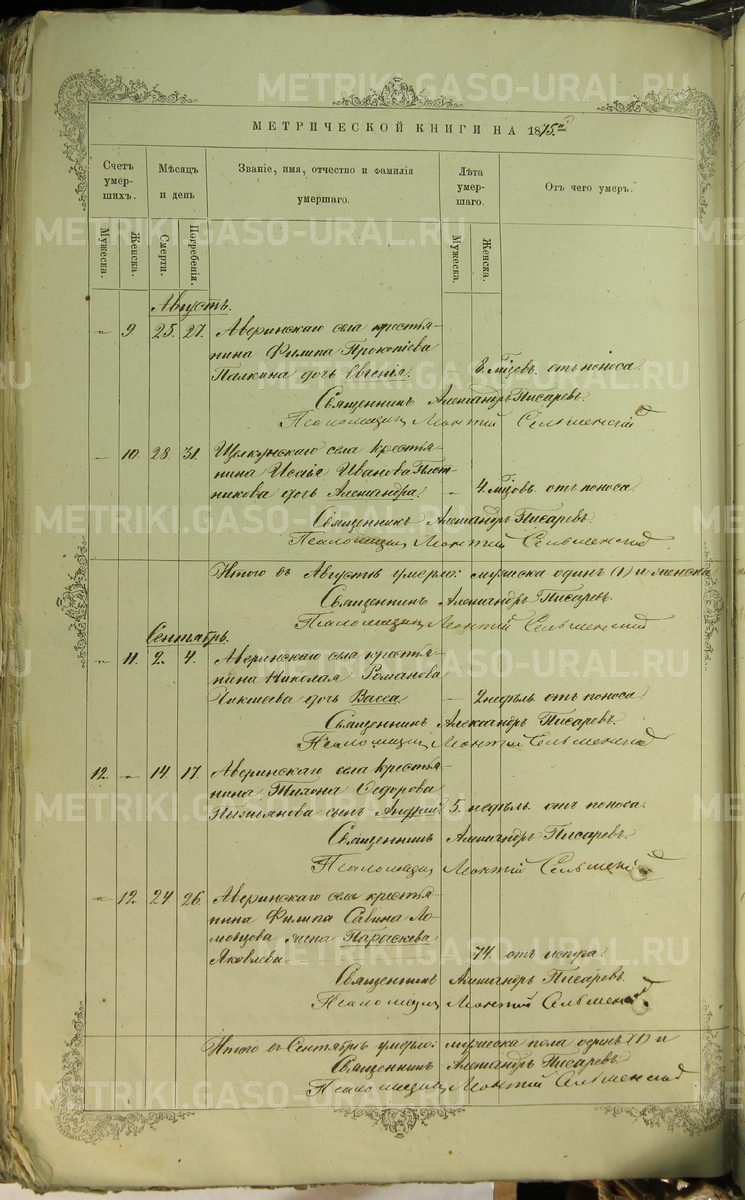 METRIKI.GASO-URAL.RU
МЕТРИЧЕСКОЙ КНИГИ НА 1875й
Счетъ умершихъ.
Мѣсяцъ и день
Званіе, имя, отчество и фамилія умершаго.
Лѣта умершаго.
Отъ чего умеръ.
Мужеска.
Женска.
Смерти.
Погребенія.
Мужеска.
Женска.
Августъ.
" 9. 25. 27. Аверинскаго села крестья-
нина Филипа Прокопіева
Палкина дочь Евгенія. - 8 мѣсяцовъ. отъ поноса.
Священникъ Александръ Писаревъ.
Псаломщикъ Леонтій Сельменскій
- 10. 28. 31. Щелкунскаго села крестья-
нина Исаія Иванова Плот-
никова дочь Александра. - 4 мѣсяцовъ. отъ поноса.
Священникъ Александръ Писаревъ.
Псаломщикъ Леонтій Сельменскій
Итого въ Августѣ умерло: мужеска одинъ (1) и женска
Священникъ Александръ Писаревъ.
Псаломщикъ Леонтій Сельменскій
Сентябрь.
- 11. 2. 4. Аверинскаго села крестья-
нина Николая Романова
дочь Васса - 2 недѣль отъ поноса.
Священникъ Александръ Писаревъ.
Псаломщикъ Леонтій Сельменскій
12. - 14. 17. Аверинскаго села крестья-
нина Тихона Ѳедорова
сынъ Андрей. 5. недѣль. отъ поноса.
Священникъ Александръ Писаревъ.
Псаломщикъ Леонтій Сельменскій
- 12. 24 26. Аверинскаго села крестья-
нина Филипа Савина Ло-
жена Параскева
Яковлева. 74. отъ
Священникъ Александръ Писаревъ.
Псаломщикъ Леонтій Сельменскій
Итого въ Сентябрѣ умерло: мужеска пола одинъ (1) и
Священникъ Александръ Писаревъ
Псаломщикъ Леонтій Сельменскій